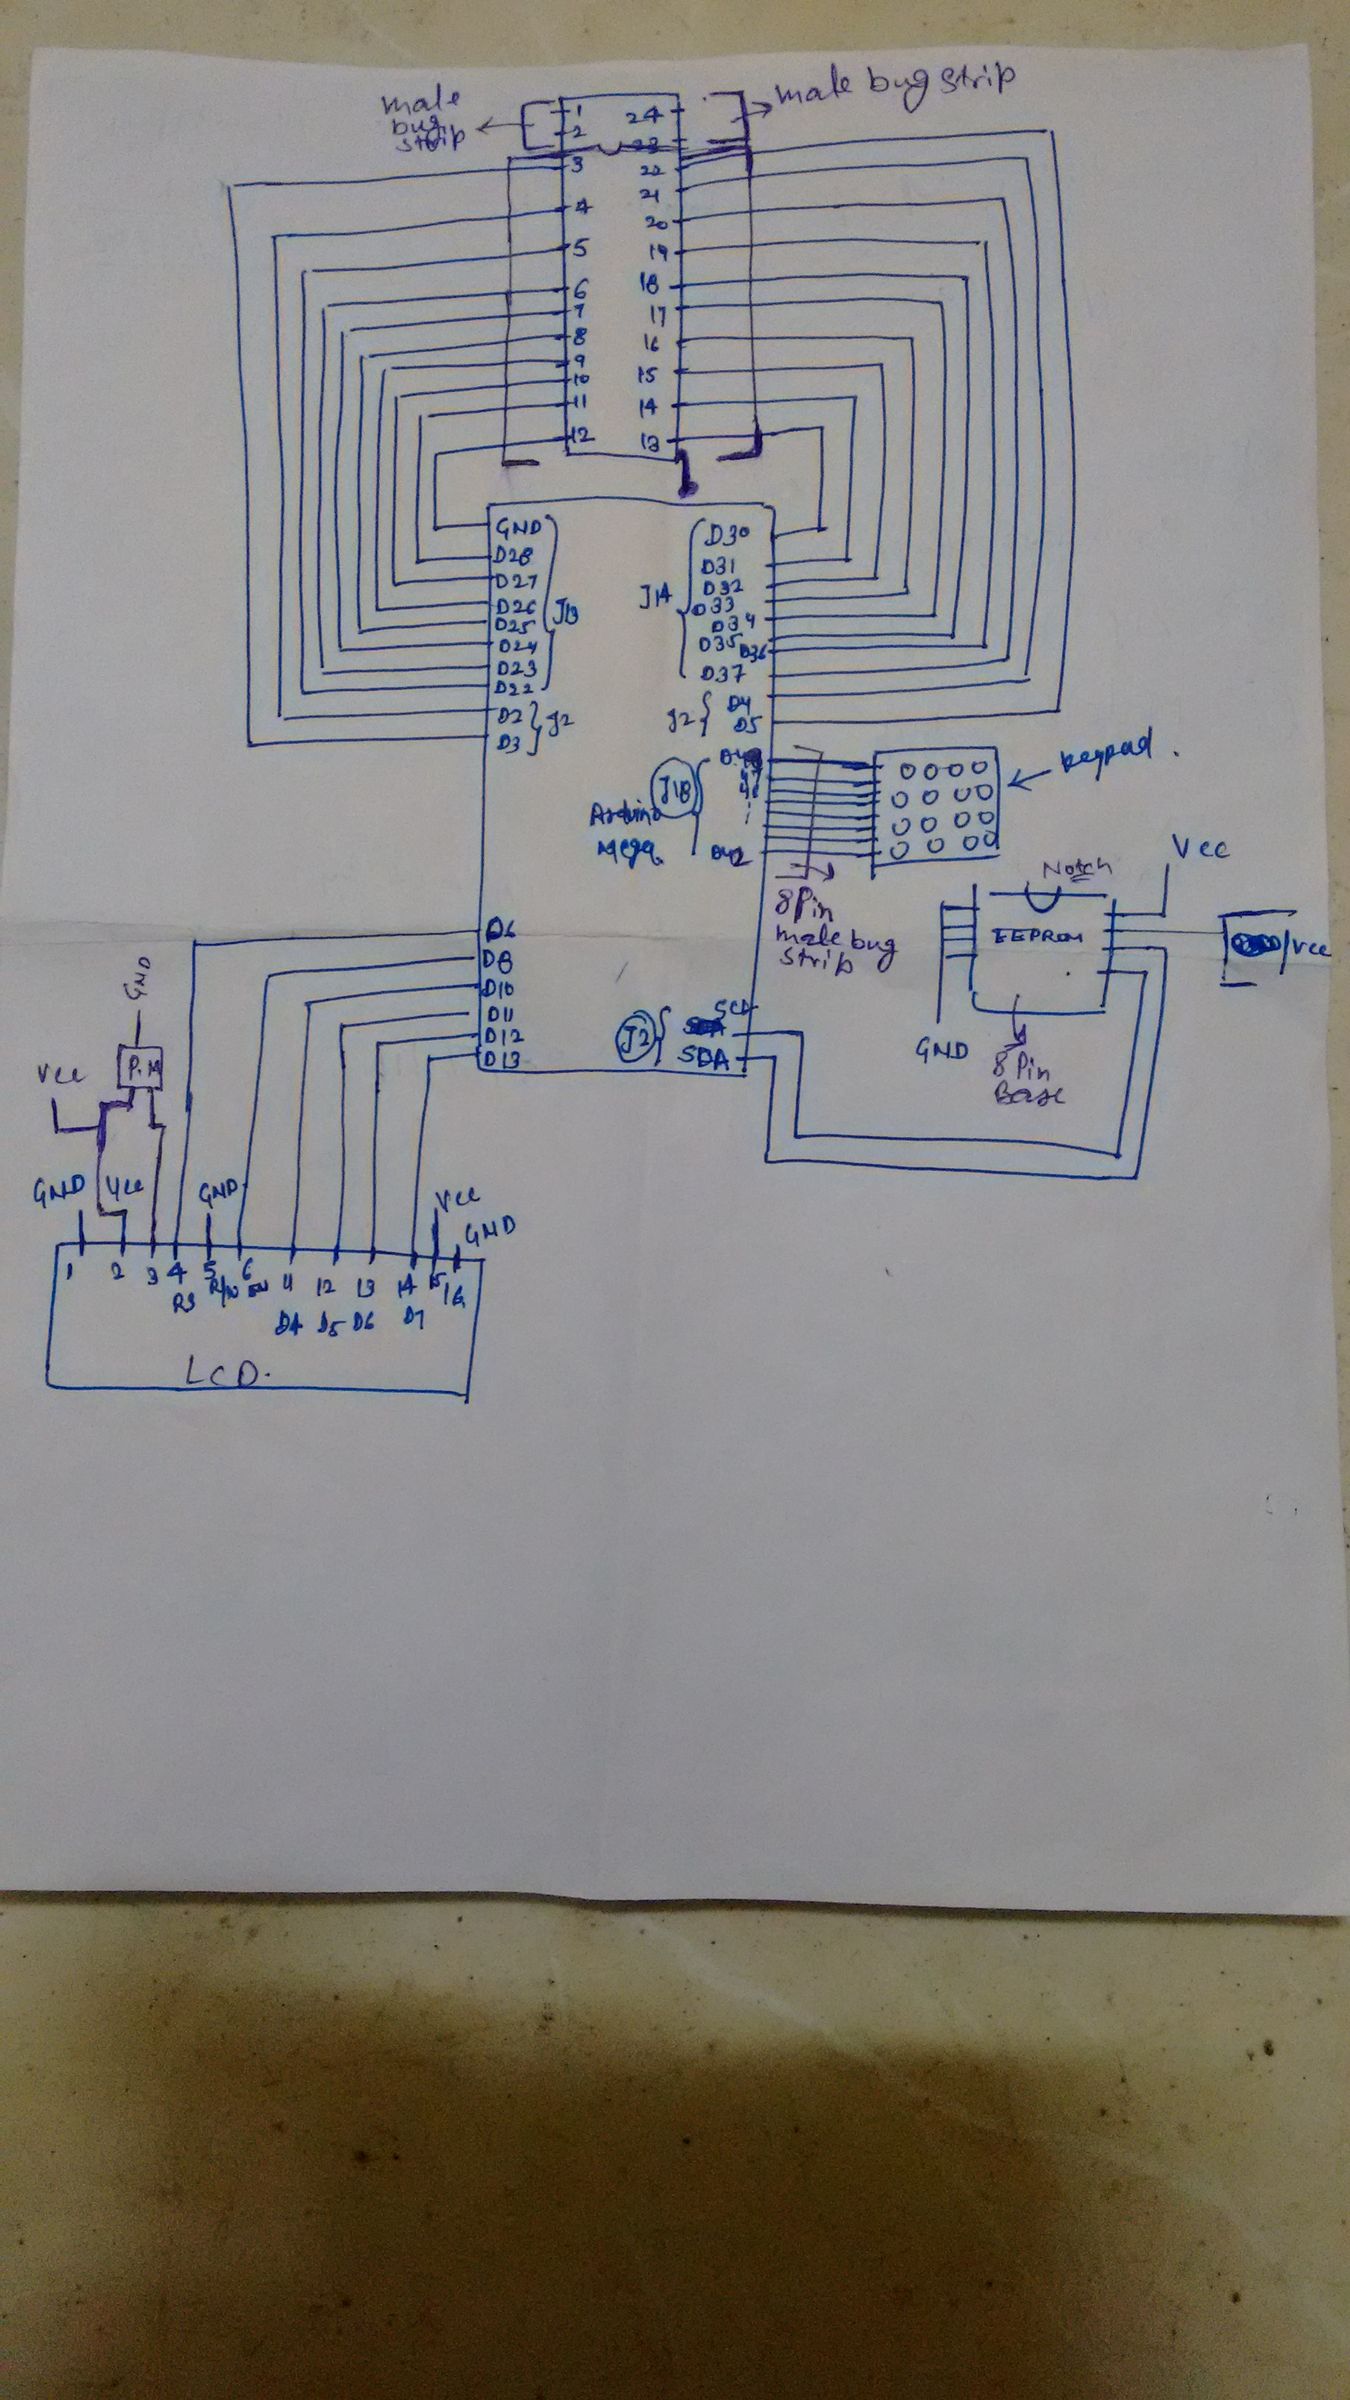 male
bug
strip
male bug strip
1 24
2 23
3 22
4 21
5 20
6 19
7 18
8 17
9 16
10 15
11 14
12 13
GND
D28
D27
D26
D25
D24
D23
D22
J13
D2
D3
J2
D30
D31
D32
D33
D34
D35
D36
D37
J14
D4
D5
J2
J18
Arduino
Mega
D42
keypad.
8 Pin
male bug
strip
Notch
Vcc
EEPROM
/Vcc
GND
8 Pin
Base
D6
D8
D10
D11
D12
D13
J2
SCL
SDA
GND
Vcc
GND
Vcc
GND
Vcc
GND
1 2 3 4 5 6 11 12 13 14 15 16
RS R/W EN
D4 D5 D6 D7
LCD.